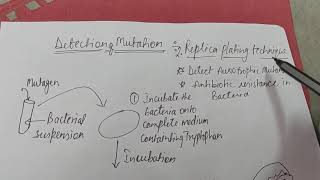 Detection of Mutation
Replica plating technique
* Detect Auxotrophic Mutants
* Antibiotic resistance in
Bacteria
Mutagen
Bacterial
suspension
① Incubate the
bacteria onto
complete medium
containing Tryptophan
Incubation